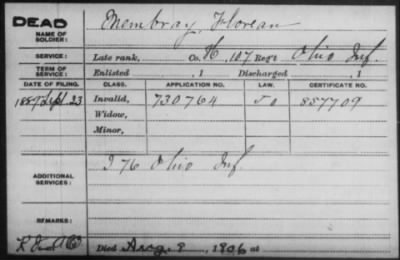 DEAD
NAME OF SOLDIER: Membray, Florean
SERVICE: Late rank, Co. H, 107 Reg't Ohio Inf.
TERM OF SERVICE: Enlisted , 1 Discharged , 1
DATE OF FILING. CLASS. APPLICATION NO. LAW. CERTIFICATE NO.
1889 Sept. 23 Invalid, 730764 887709
Widow,
Minor,
ADDITIONAL SERVICES: I 76 Ohio Inf.
REMARKS:
Died Aug. 8, 1906 at